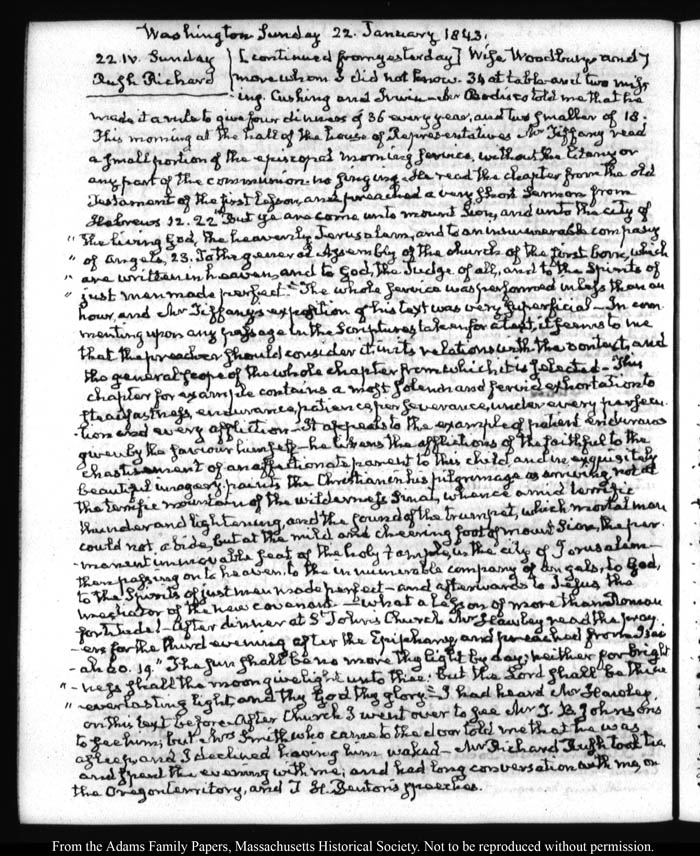 Washington Sunday 22. January 1843.
22. IV. Sunday [continued from yesterday] Wife Woodburys and 7
Rush Richard more whom I did not know. 34 at table and two miss
ing. Cushing and Irwin — Mr Bodisco told me that he
made it a rule to give four dinners of 36 every year, and two smaller of 18.
This morning at the hall of the house of Representatives Mr Tiffany read
a small portion of the episcopal morning service, without the Litany or
any part of the communion. no singing. He read the chapter from the old
Testament of the first Lesson, and preached a very short Sermon from
Hebrews 12. 22 "But ye are come unto mount Sion, and unto the city of
" the living God, the heavenly Jerusalem, and to an innumerable company
" of Angels, 23. To the general Assembly of the church of the first born, which
" are written in heaven, and to God, the Judge of all, and to the Spirits of
" just men made perfect." The whole service was performed in less than an
hour, and Mr Tiffany's exposition of his text was very superficial — In com
menting upon any passage in the Scriptures taken for a text, it seems to me
that the preacher should consider it in its relations with the context, and
the general scope of the whole chapter from which it is selected — This
chapter for example contains a most solemn and fervid exhortation to
steadfastness, endurance, patience, perseverance, under every persecu
-tion and every affliction — It appeals to the example of patient endurance
given by the saviour himself — he likens the afflictions of the faithful to the
chastisement of an affectionate parent to his child, and in exquisitely
beautiful imagery, paints the Christian in his pilgrimage as arriving not at
the terrific mountain of the wilderness Sinai, whence amid terrific
thunder and lightening, and the sound of the trumpet, which mortal man
could not abide, but at the mild and cheering foot of mount Sion, the per
-manent immovable seat of the holy temple, in the city of Jerusalem
then passing on to heaven, to the innumerable company of angels, to God,
to the Spirits of just men made perfect — and afterwards to Jesus the
mediator of the new covenant — what a lesson of more than Roman
fortitude! — After dinner at St John's Church Mr Hawley read the pray
-ers for the third evening after the Epiphany, and preached from Isai
-ah 60. 19. "The Sun shall be no more thy light by day; neither for bright
" -ness shall the moon give light unto thee: but the Lord shall be thine
" everlasting light, and thy God thy glory." I had heard Mr Hawley
on this text before. After Church I went over to see Mr J. B. Johnsons
to see him; but Mrs Smith who came to the door told me that he was
asleep and I declined having him waked — Mr Richard Rush took tea
and spent the evening with me; and had long conversation with me, on
the Oregon territory, and T. H. Benton's speeches.
From the Adams Family Papers, Massachusetts Historical Society. Not to be reproduced without permission.